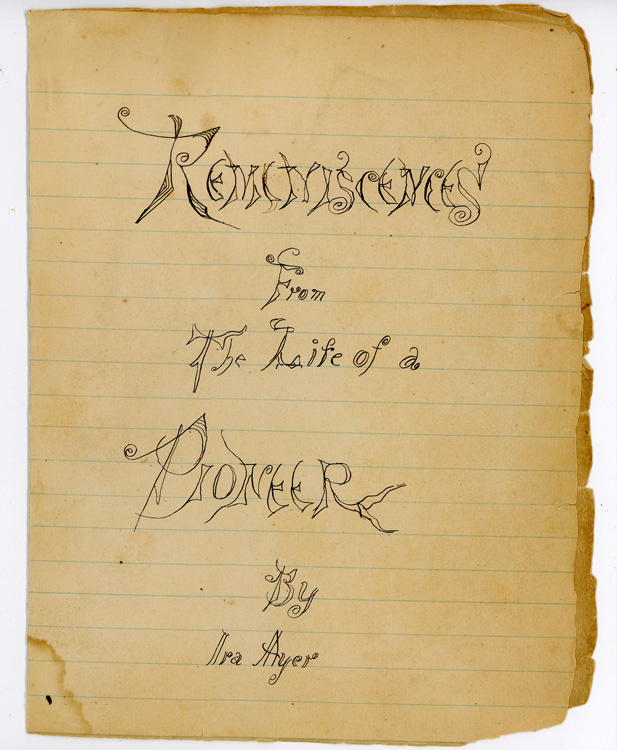 REMINISCENCES
From
The Life of a
PIONEER
By
Ira Ayer